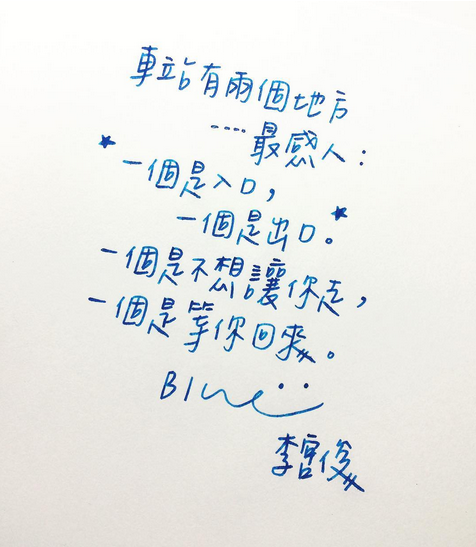 車站有兩個地方
....最感人：
一個是入口，
一個是出口。
一個是不想讓你走，
一個是等你回來。
Blue
李宮俊